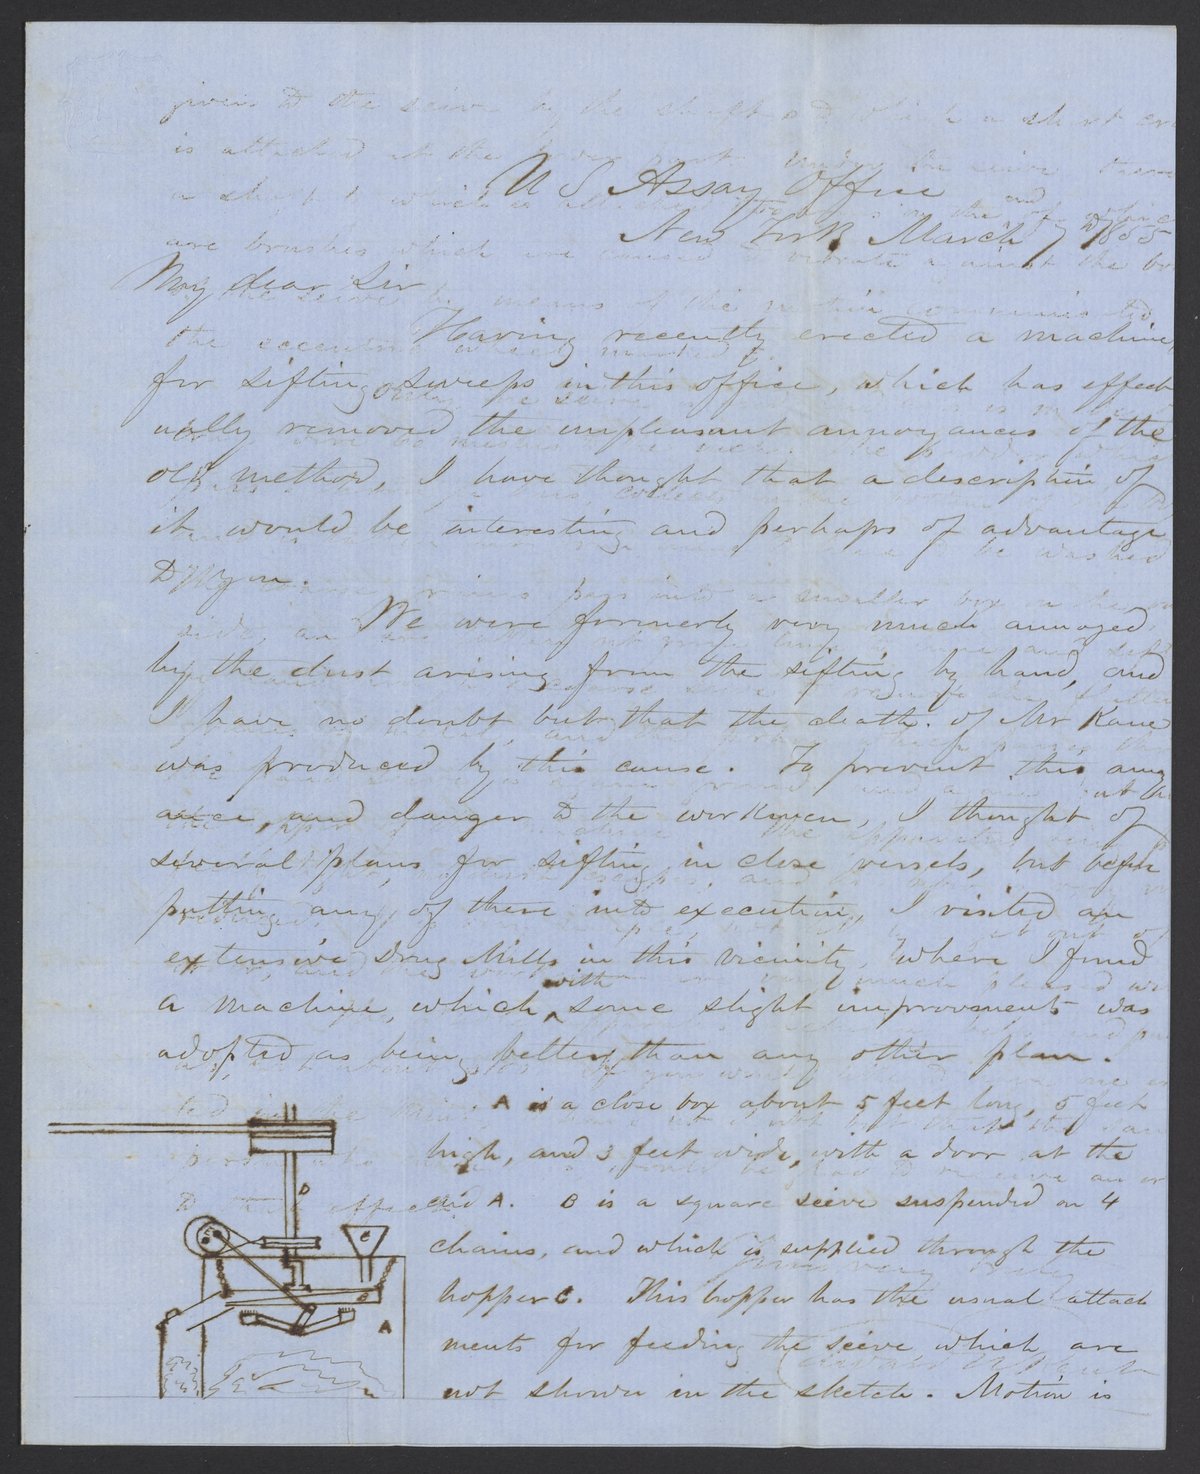 U S Assay Office
New York March 7 1855
My dear Sir
Having recently erected a machine,
for sifting sweeps in this office, which has effect
ually removed the unpleasant annoyances of the
old method, I have thought that a description of
it would be interesting and perhaps of advantage
to you.
We were formerly very much annoyed
by the dust arising from the sifting by hand, and
I have no doubt but that the death of Mr Kane
was produced by this cause. To prevent this annoy
ance, and danger to the workmen, I thought of
several plans for sifting in close vessels, but before
putting any of these into execution, I visited an
extensive Drug Mills in this vicinity, where I found
with
a machine, which some slight improvements was
adopted as being better than any other plan.
A is a close box about 5 feet long, 5 feet
high, and 3 feet wide, with a door at the
end A. B is a square seive suspended on 4
chains, and which is supplied through the
hopper C. This hopper has the usual attach
ments for feeding the seive which are
not shown in the sketch. Motion is
D
C
B
A